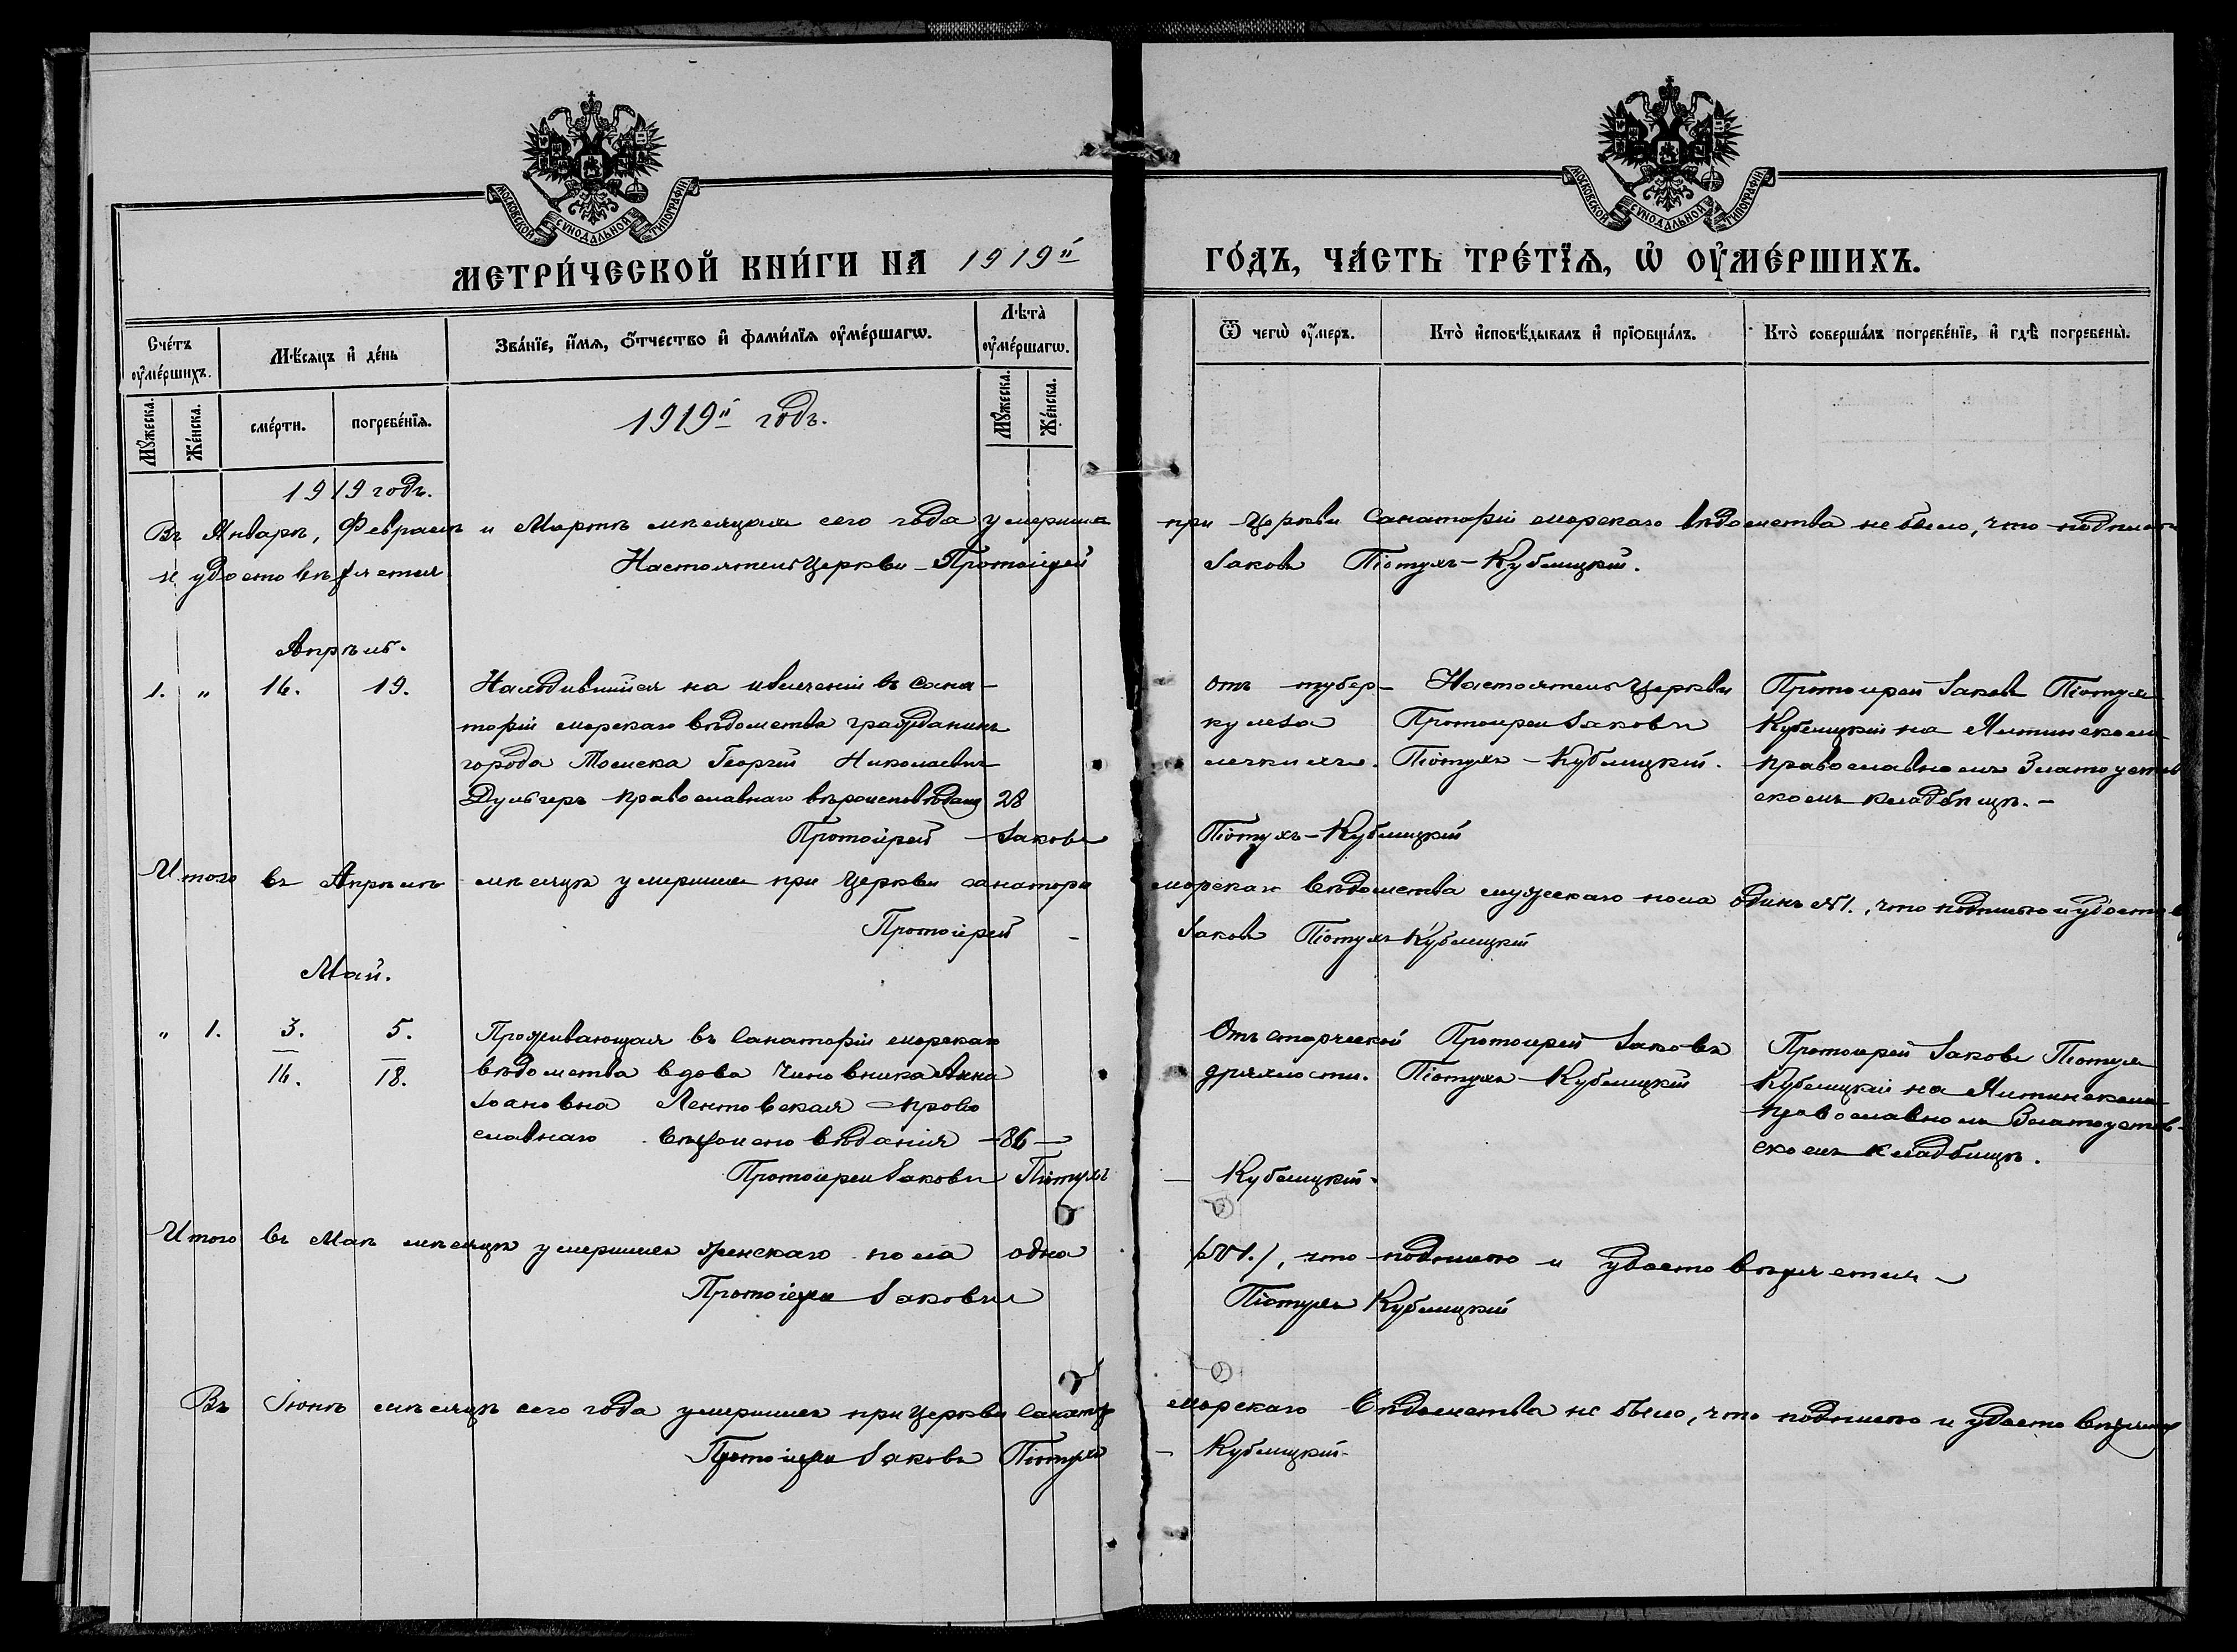 МОСКОВСКОЙ СѴНОДАЛЬНОЙ ТИПОГРАФІИ
МОСКОВСКОЙ СѴНОДАЛЬНОЙ ТИПОГРАФІИ
МЕТРИ́ЧЕСКОЙ КНИ́ГИ НА 1919й ГО́ДЪ, ЧА́СТЬ ТРЕ́ТЇѦ, Ѡ҆ ОУ҆МЕ́РШИХЪ.
Сче́тъ оу҆ме́ршихъ.
Мѣ́сѧцъ и҆ де́нь
Зва́нїе, и҆́мѧ, ѻ҆́тчество и҆ фами́лїѧ оу҆ме́ршагѡ.
Лѣ́та̀ оу҆ме́ршагѡ.
Ѿ чегѡ̀ оу҆́меръ.
Кто̀ и҆сповѣ́дывалъ и҆ прїѻбща́лъ.
Кто̀ соверша́лъ погребе́нїе, и҆ гдѣ̀ погребены̀.
Мꙋ́жеска. Же́нска. сме́рти. погребе́нїѧ. Мꙋ́жеска. Же́нска.
1919й годъ.
1919 годъ.
Въ Январѣ, Февралѣ и Мартѣ мѣсяцахъ сего года умершихъ при Церкви Санаторіи морскаго вѣдомства не было, что подписью
и удостовѣряется Настоятель Церкви Протоіерей Іаковъ Пѣтухъ-Кублицкій.
Апрѣль.
1. " 16. 19. Находившійся на излеченіи въ Сана-
торіи морскаго вѣдомства гражданинъ
города Томска Георгій Николаевич
Дульгеръ православнаго вѣроисповѣдан 28
отъ тубер-
кулеза
легкихъ.
Настоятель Церкви
Протоіерей Іаковъ
Піотухъ-Кублицкій.
Протоіерей Іаковъ Піотухъ
Кублицкій на Ялтинскомъ
православномъ Златоустов
скомъ кладбищѣ.
Протоіерей Іаковъ Піотухъ-Кублицкій
Итого въ Апрѣлѣ мѣсяцѣ умершихъ при Церкви санатори морскаго вѣдомства мужскаго пола одинъ №1., что подписью и удостов
Протоіерей Іаковъ Піотухъ-Кублицкій
Май.
" 1. 3. 5. Проживающая въ Санаторіи морскаго
16. 18. вѣдомства вдова Чиновника Анна
Іоановна Лентовская право
славнаго вѣроисповѣданія -86-
Отъ старческой
дряхлости.
Протоіерей Іаковъ
Піотухъ-Кублицкій
Протоіерей Іаковъ Піотухъ
Кублицкій на Ялтинскомъ
православномъ Златоустов-
скомъ кладбищѣ.
Протоіерей Іаковъ Піотухъ - Кублицкій.
Итого въ Маѣ мѣсяцѣ умершихъ женскаго пола одна (№1.), что подписью и удостовѣряется
Протоіерей Іаковъ Піотухъ Кублицкій
Въ Іюнѣ мѣсяцѣ сего года умершихъ при Церкви Санатор морскаго Вѣдомства не было, что подписью и удостовѣряется
Протоіерей Іаковъ Піотухъ - Кублицкій